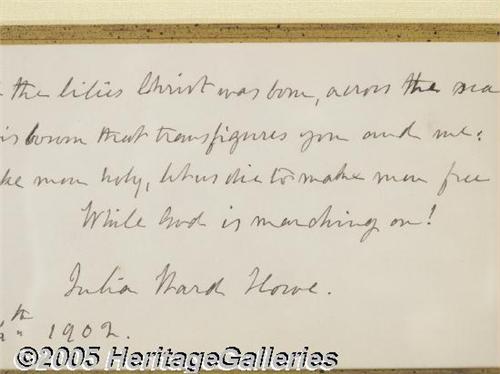 the lilies Christ was born, across the sea
bosom that transfigures you and me:
men holy, let us die to make men free
While God is marching on!
Julia Ward Howe.
th 1902.
©2005 HeritageGalleries